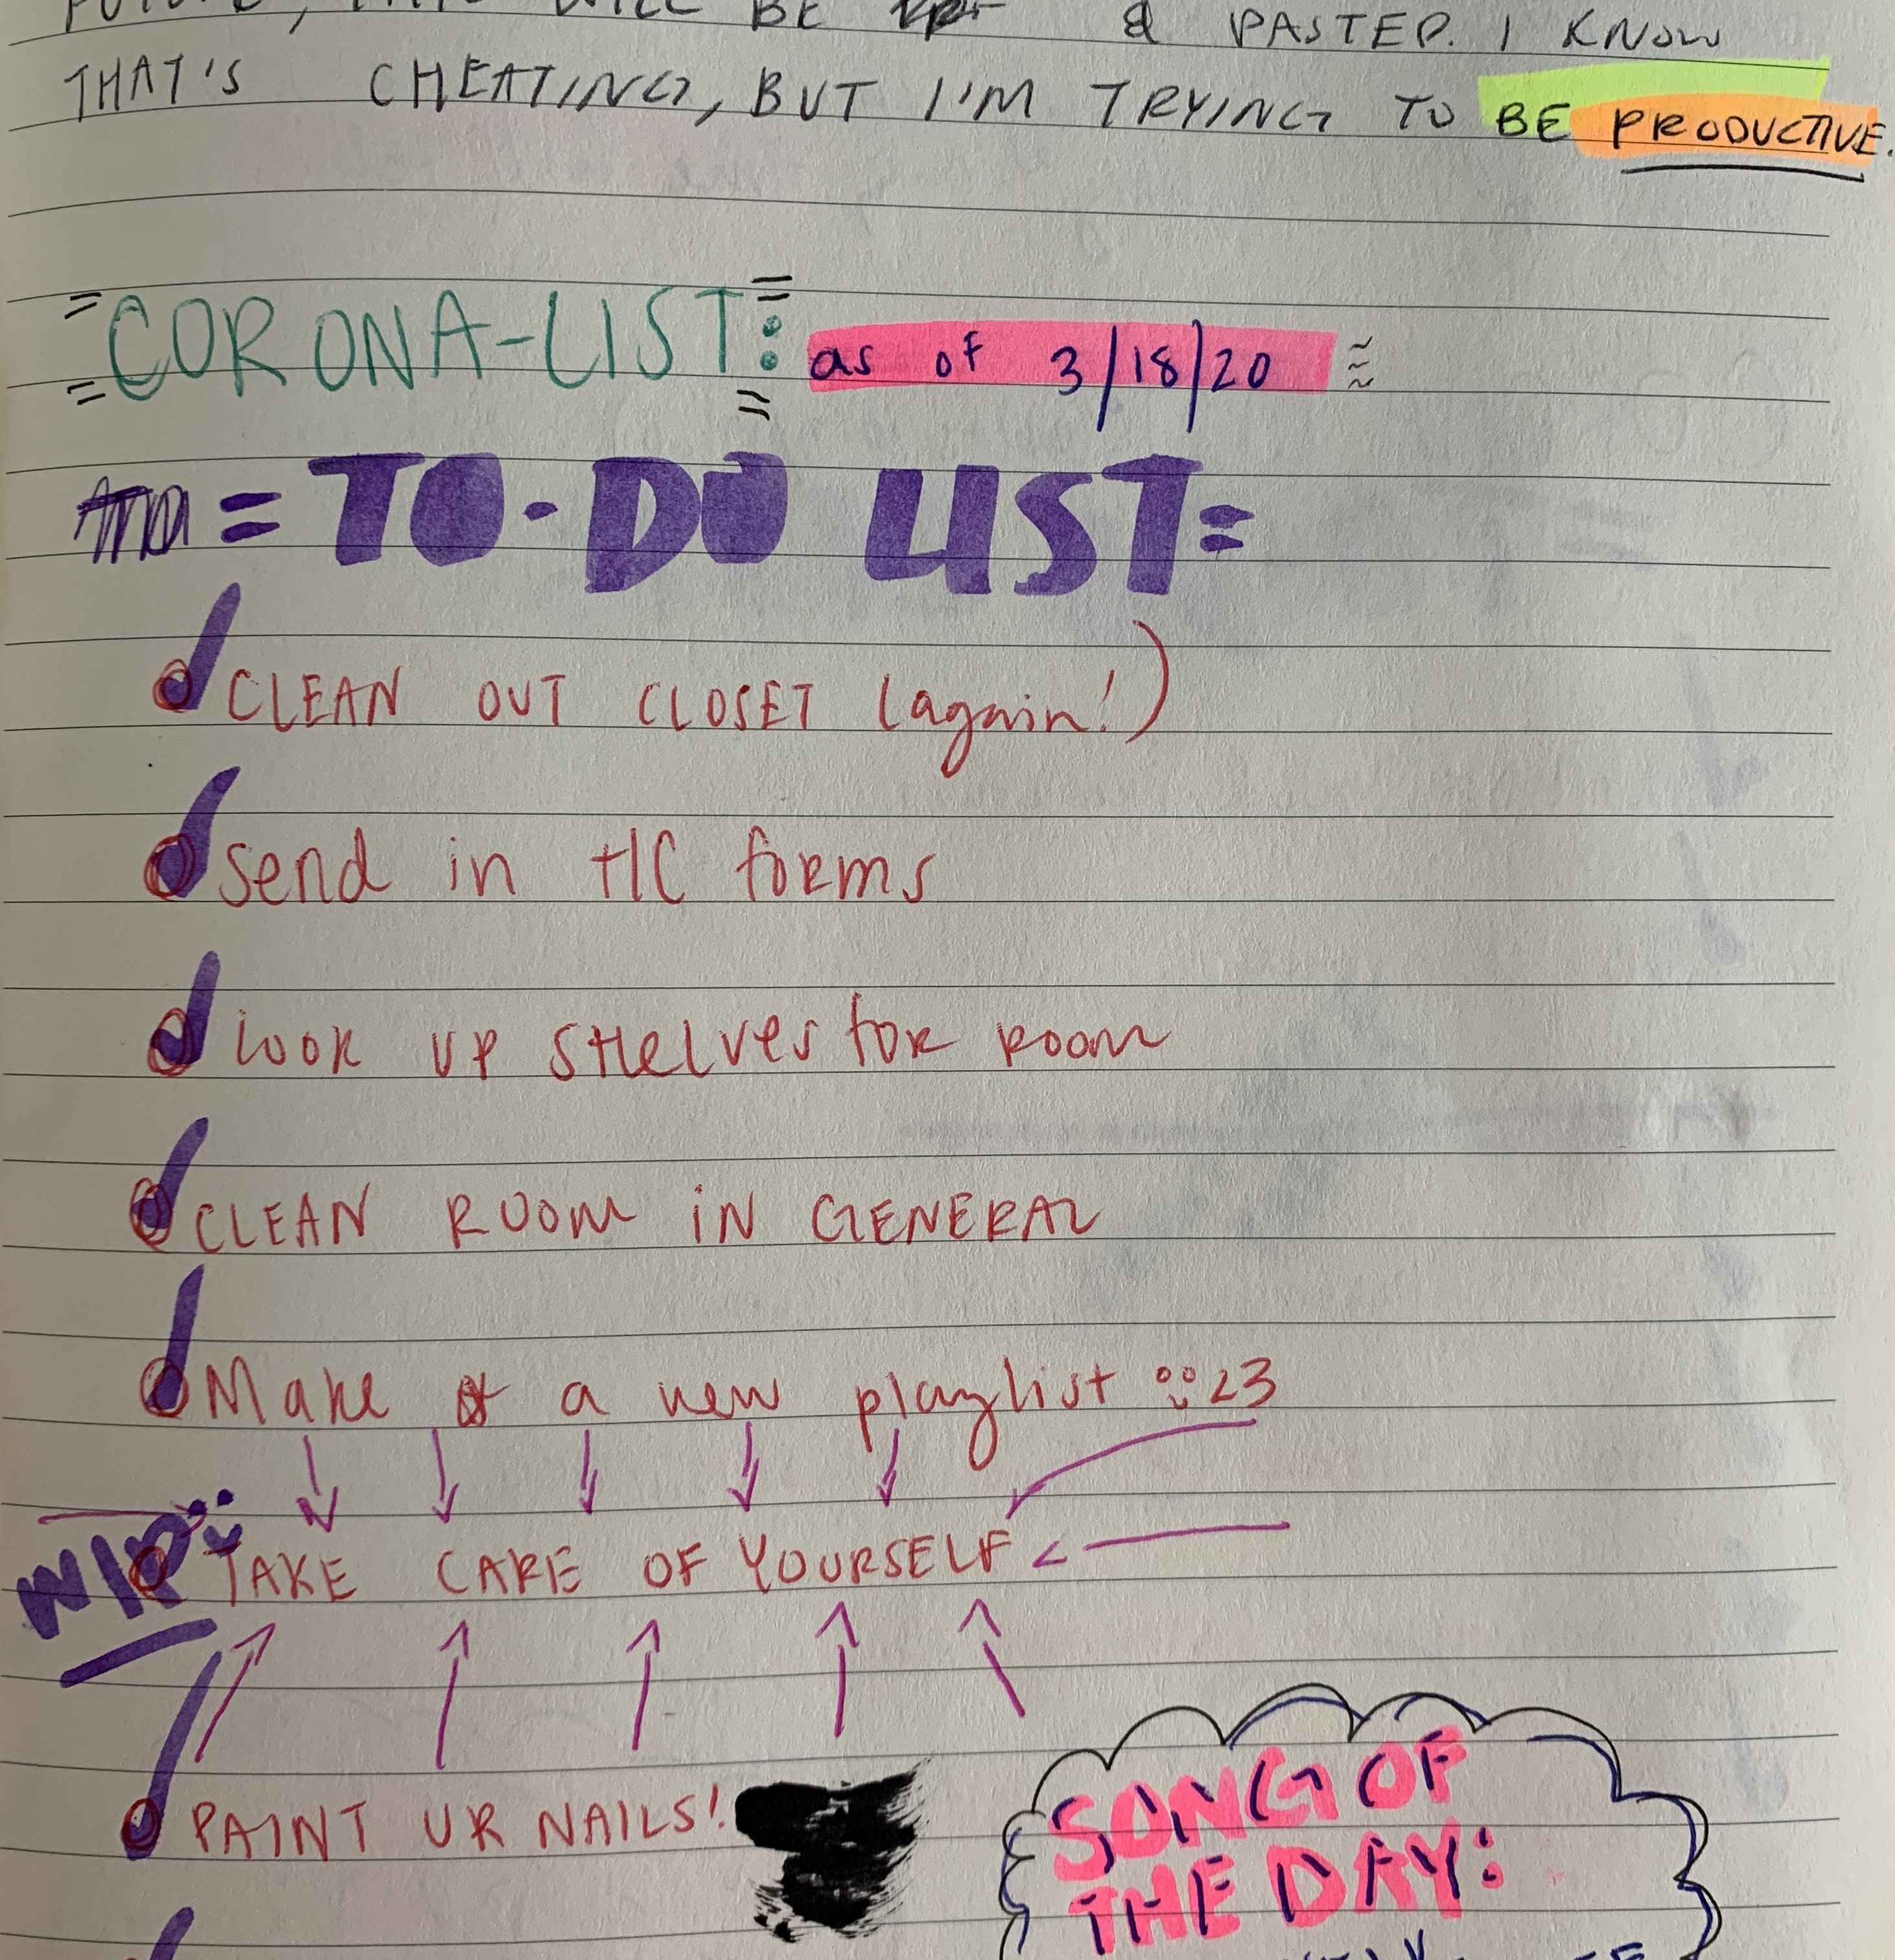 WILL BE & PASTED. I KNOW
THAT'S CHEATING, BUT I'M TRYING TO BE PRODUCTIVE.
=CORONA-LIST: as of 3/18/20
= TO-DO LIST=
CLEAN OUT CLOSET (again!)
Send in HC forms
LOOK UP SHELVES FOR ROOM
CLEAN ROOM IN GENERAL
Make a new playlist :) <3
WIP :)
TAKE CARE OF YOURSELF <
PAINT UR NAILS!
SONG OF
THE DAY: